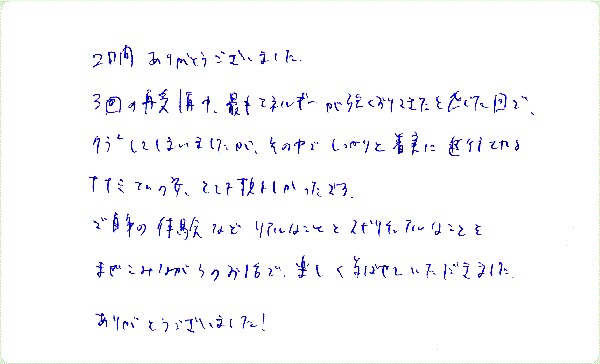 2日間 ありがとうございました.
3回の再受講中、最もエネルギーが強くおりてきたと感じた回で、
クラクラしてしまいましたが、その中でしっかりと着実に進行されて
ナナミさんの姿、とても頼もしかったです.
ご自身の体験など リアルなことと スピリチュアルなことを
まぜこみながらのお話で、楽しく学ばせていただきました.
ありがとうございました!